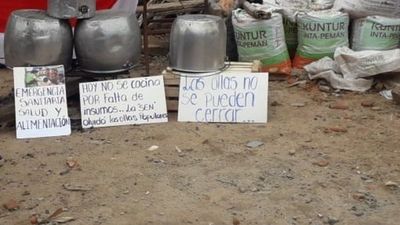 EMERGENCIA
SANITARIA
SALUD Y
ALIMENTACIÓN
HOY NO SE COCINA
POR FALTA DE
INSUMOS... La SEN
olvidó las ollas Populares
Las ollas no
se pueden
cerrar...
KÜNTUR
INTA-PEMAN
KÜNTUR
INTA-PEMAN